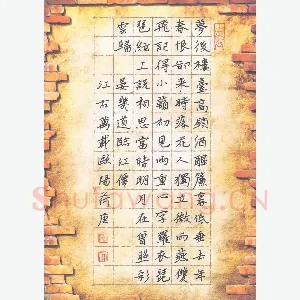 夢後樓臺高鎖酒醒簾幕低垂去年
春恨卻來時落花人獨立微雨燕雙
飛記得小蘋初見兩重心字羅衣琵
琶絃上說相思當時明月在曾照彩
雲歸 晏幾道臨江僊
江右萬載歐陽荷庚
Shufawang.cn